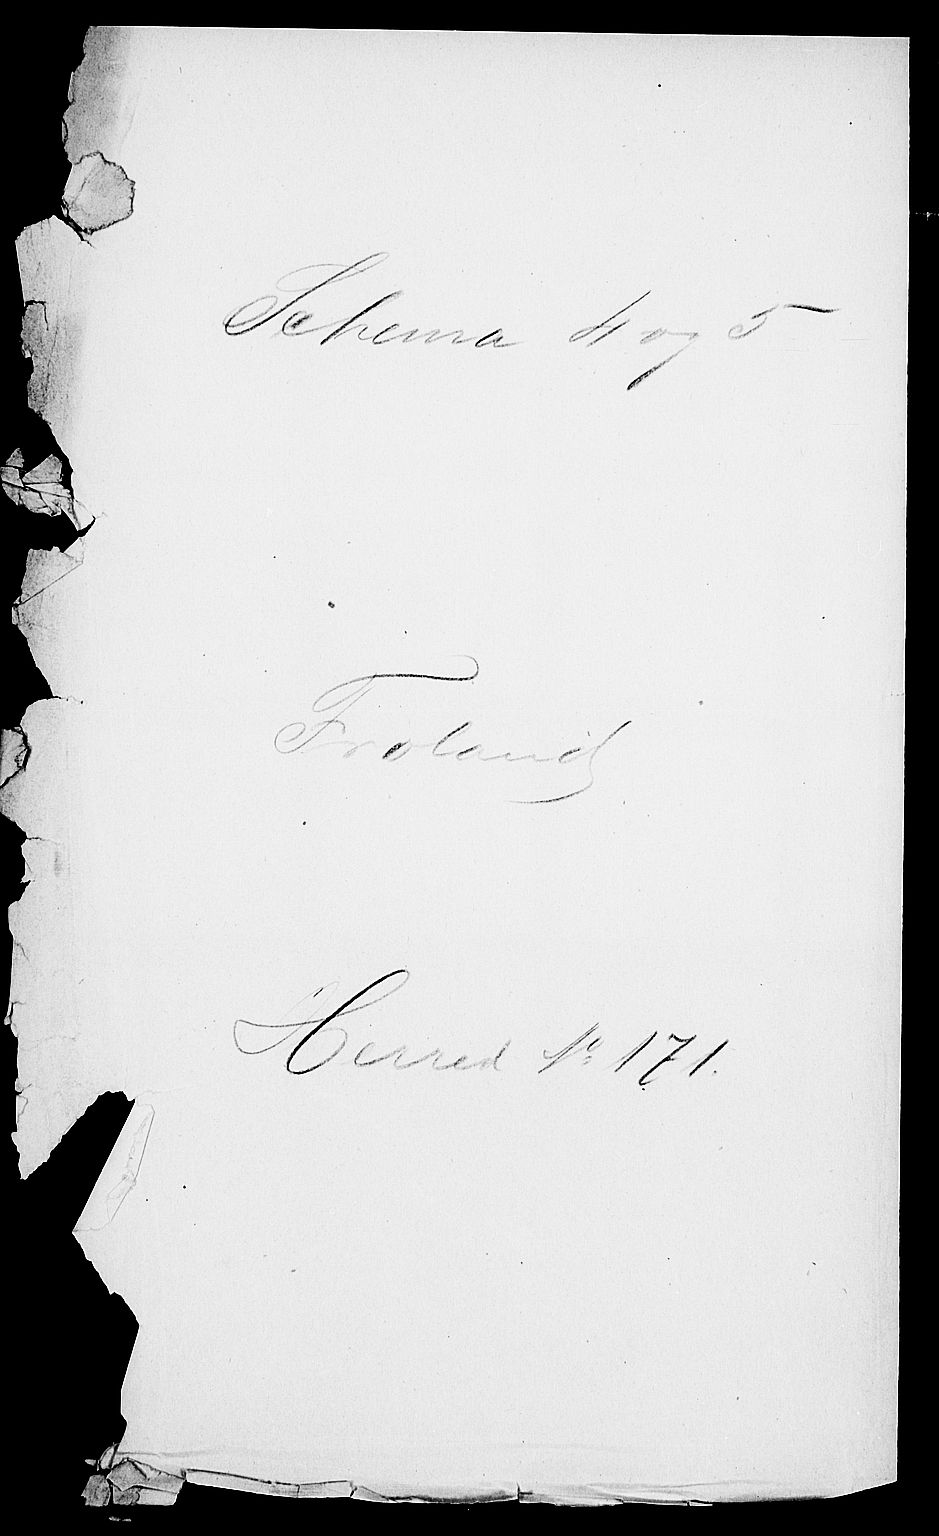 Schema 4 og 5
Froland
Herred No 171.